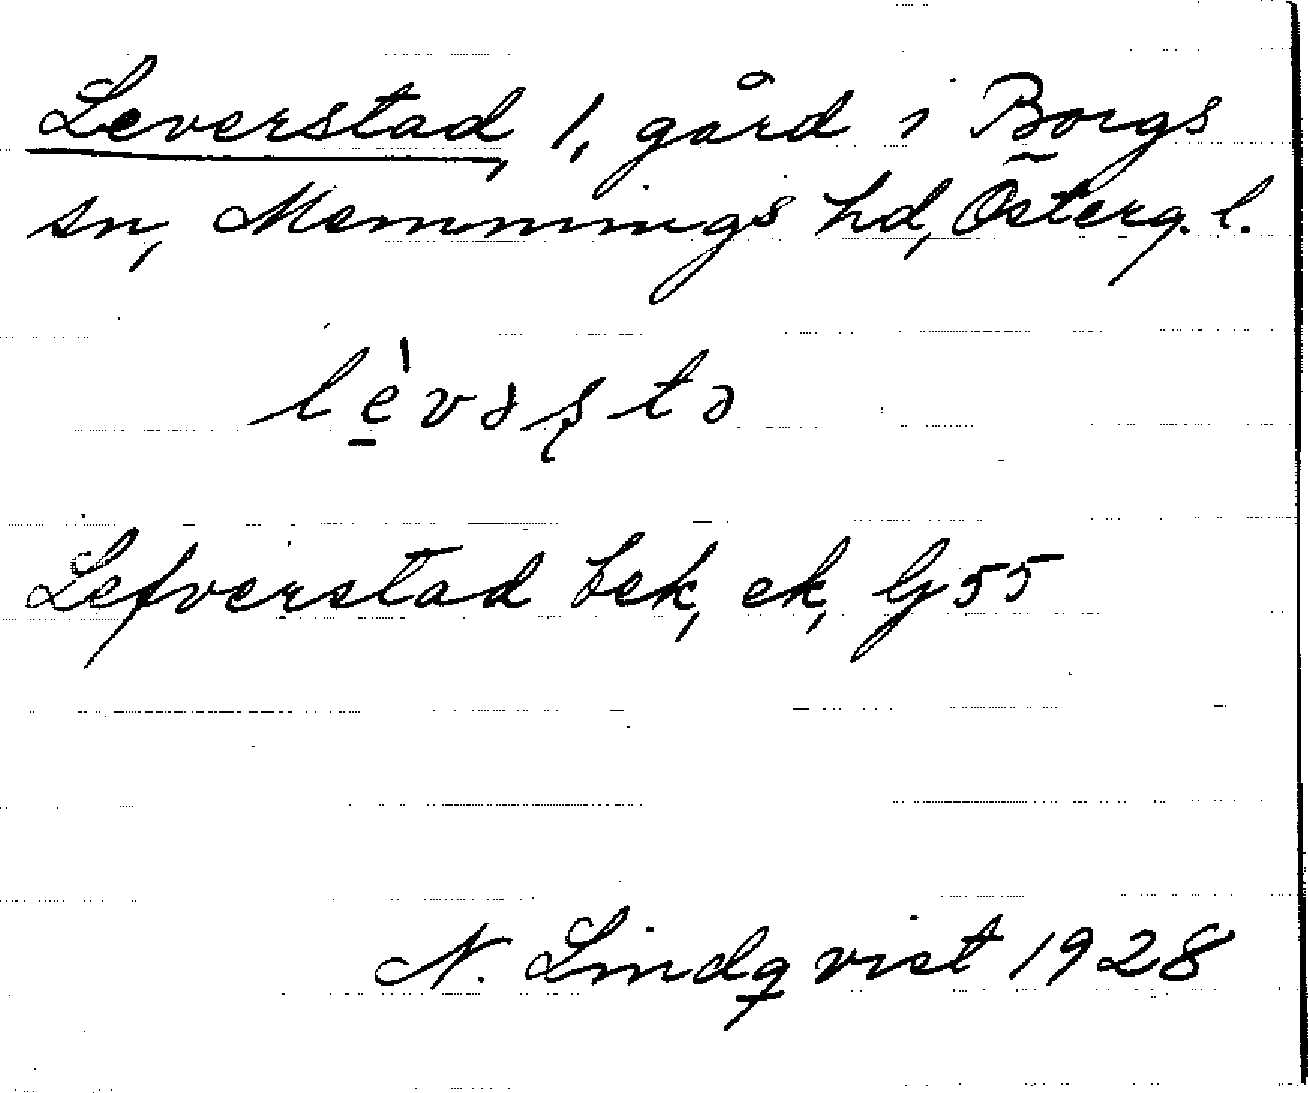 Leverstad, 1, gård i Borgs
sn, Memmings hd, Österg. l.
lèvəʂtə
Lefverstad bek, ek, Gj 55
N. Lindqvist 1928